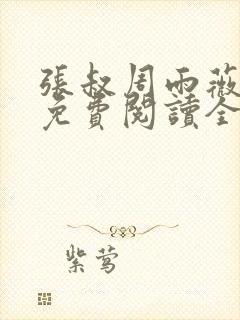 張叔周雨薇
免費閱讀全
紫莺